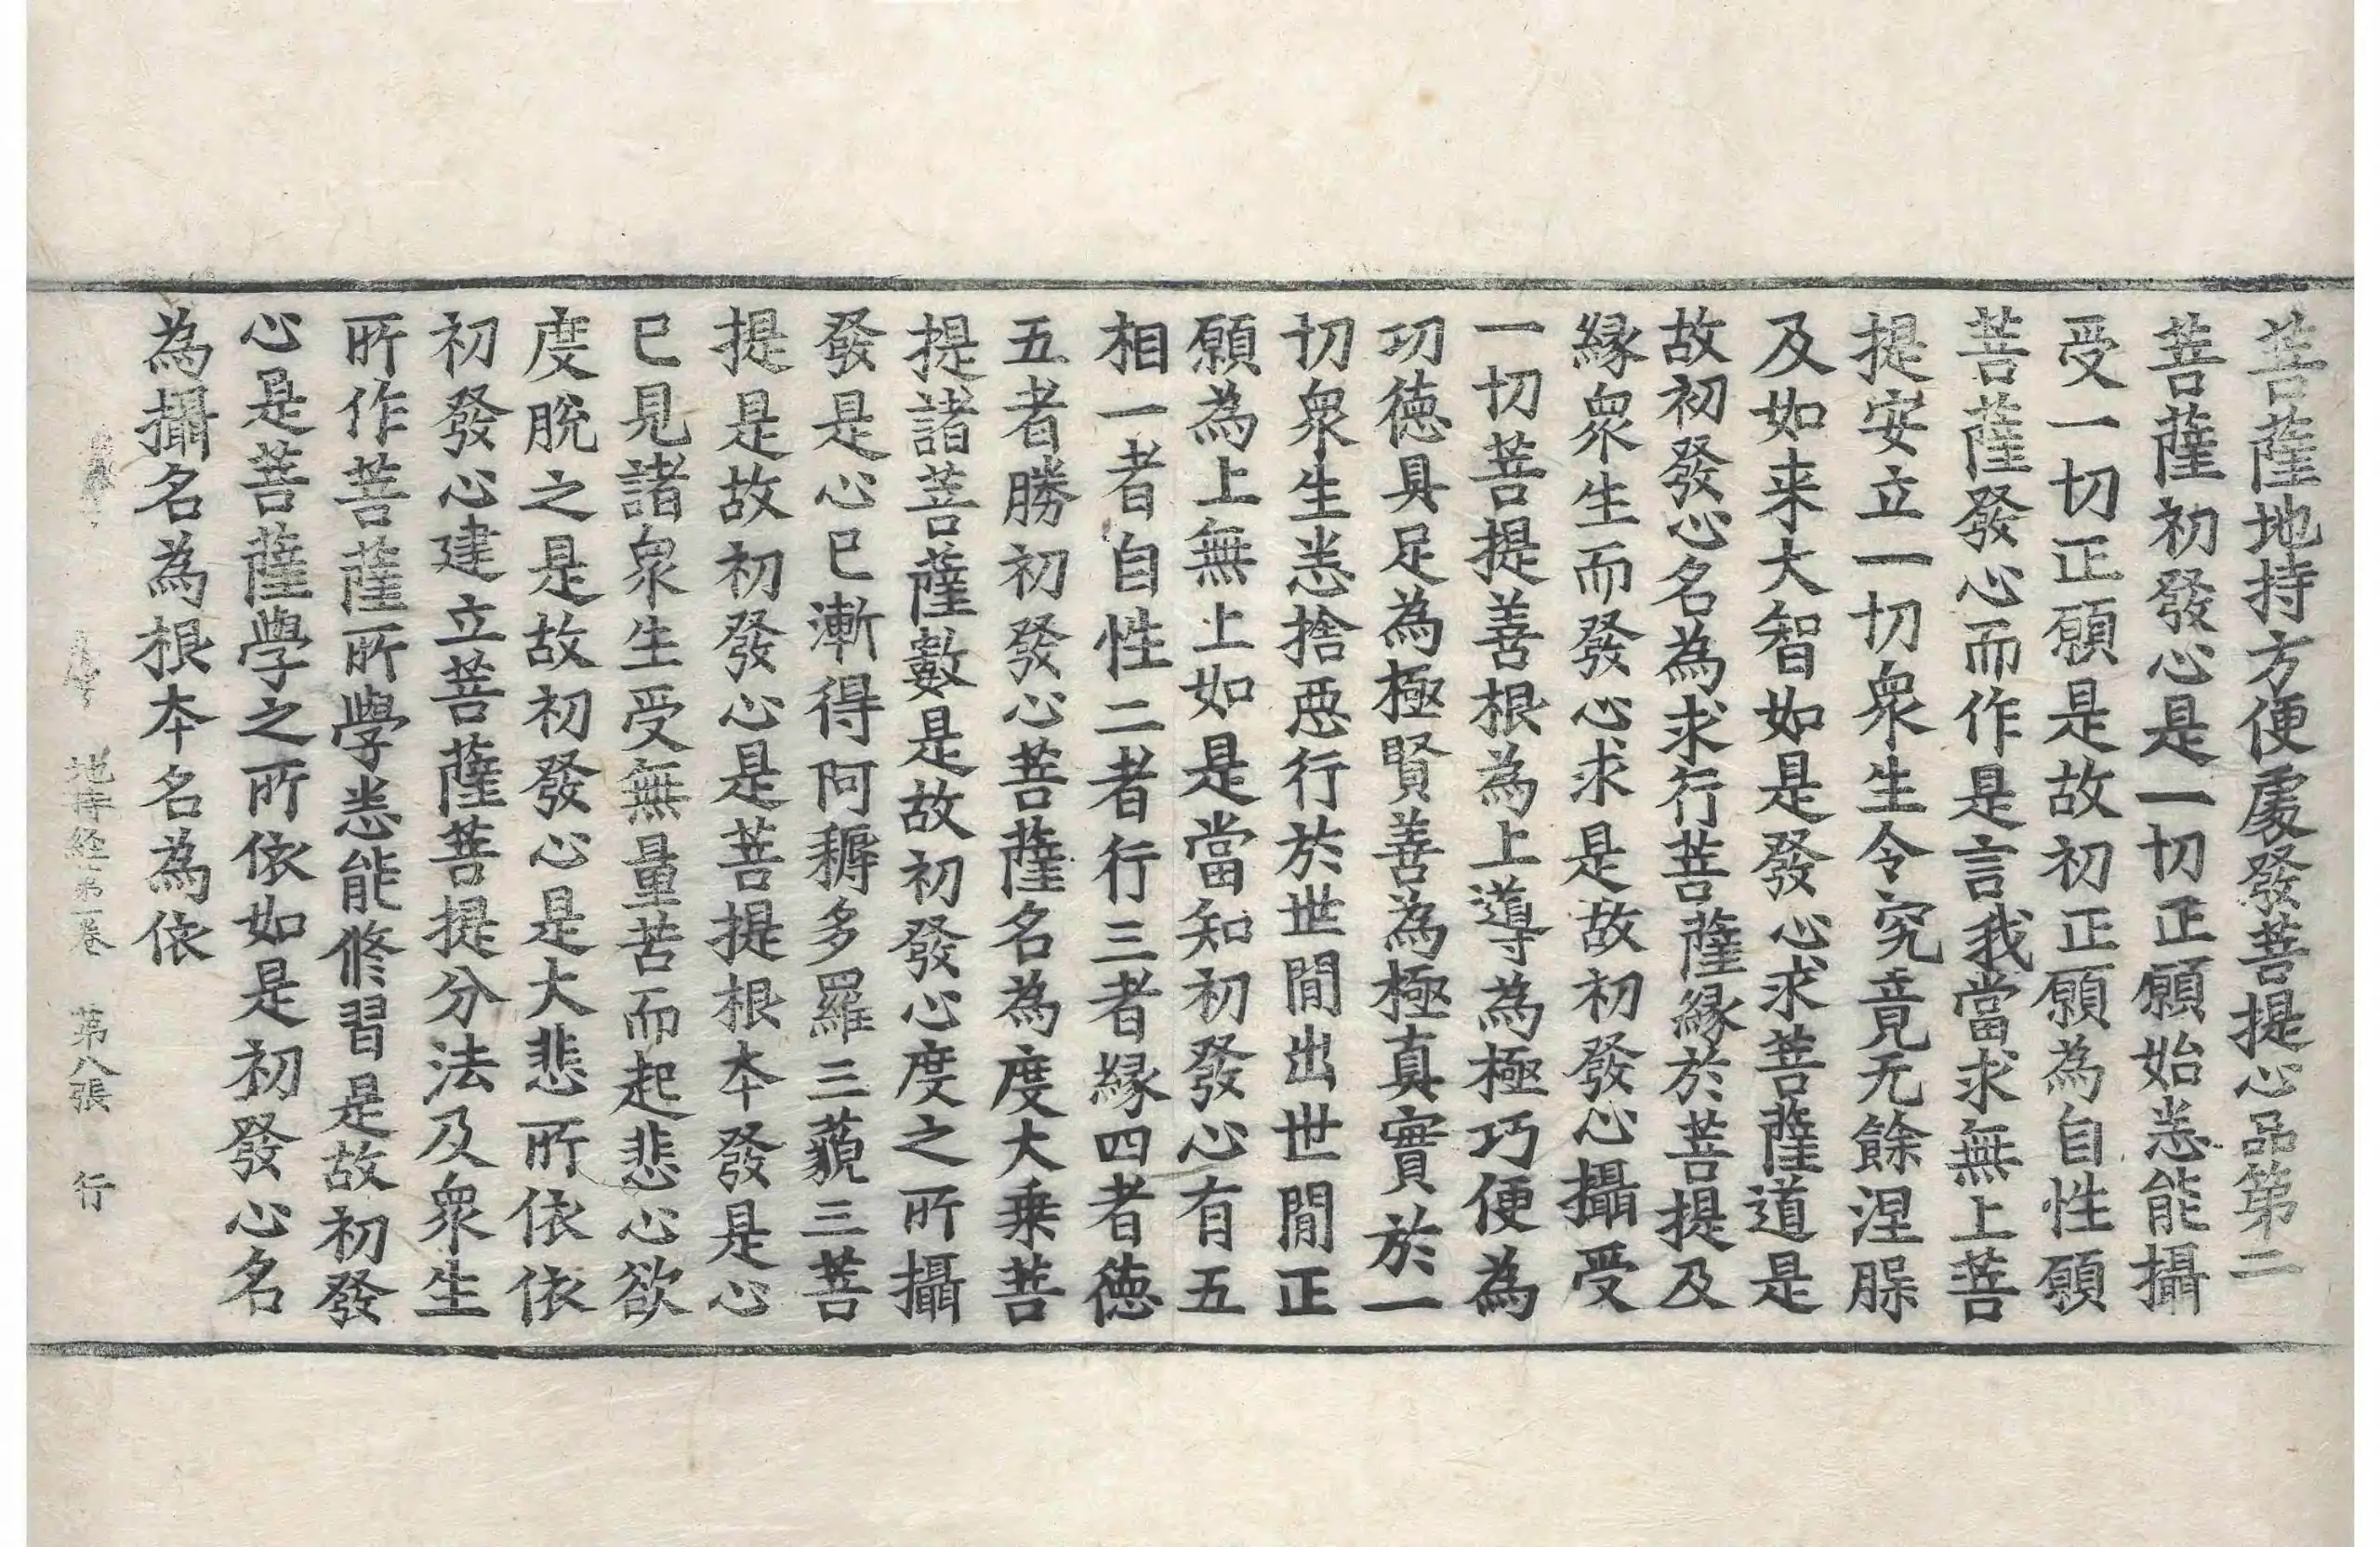 菩薩地持方便處發菩提心品第二
菩薩初發心是一切正願始悉能攝
受一切正願是故初正願為自性願
菩薩發心而作是言我當求無上菩
提安立一切衆生令究竟无餘涅槃
及如来大智如是發心求菩薩道是
故初發心名為求行菩薩緣於菩提及
緣衆生而發心求是故初發心攝受
一切菩提善根為上導為極巧便為
功德具足為極賢善為極真實於一
切衆生悉捨惡行於世間出世間正
願為上無上如是當知初發心有五
相一者自性二者行三者緣四者德
五者勝初發心菩薩名為度大乗菩
提諸菩薩數是故初發心度之所攝
發是心已漸得阿耨多羅三藐三菩
提是故初發心是菩提根本發是心
已見諸衆生受無量苦而起悲心欲
度脫之是故初發心是大悲所依依
初發心建立菩薩菩提分法及衆生
所作菩薩所學悉能脩習是故初發
心是菩薩學之所依如是初發心名
為攝名為根本名為依
地持経第一卷 第八張 行